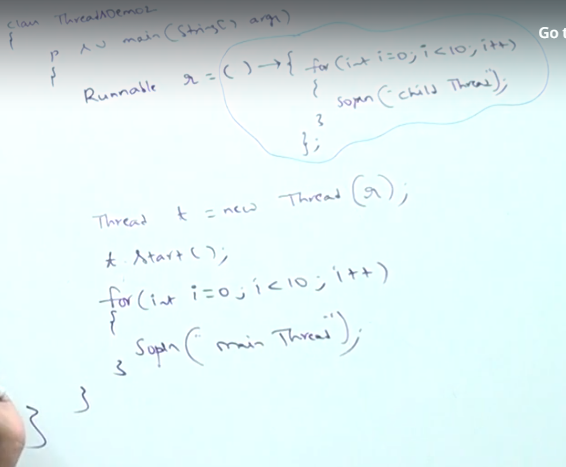 class ThreadDemo2
{
p s v main(String[] args)
{
Runnable r = () → { for(int i=0; i<10; i++)
{
sopln("child Thread");
}
};
Thread t = new Thread(r);
t.start();
for(int i=0; i<10; i++)
{
sopln("main Thread");
}
}
}
Go t